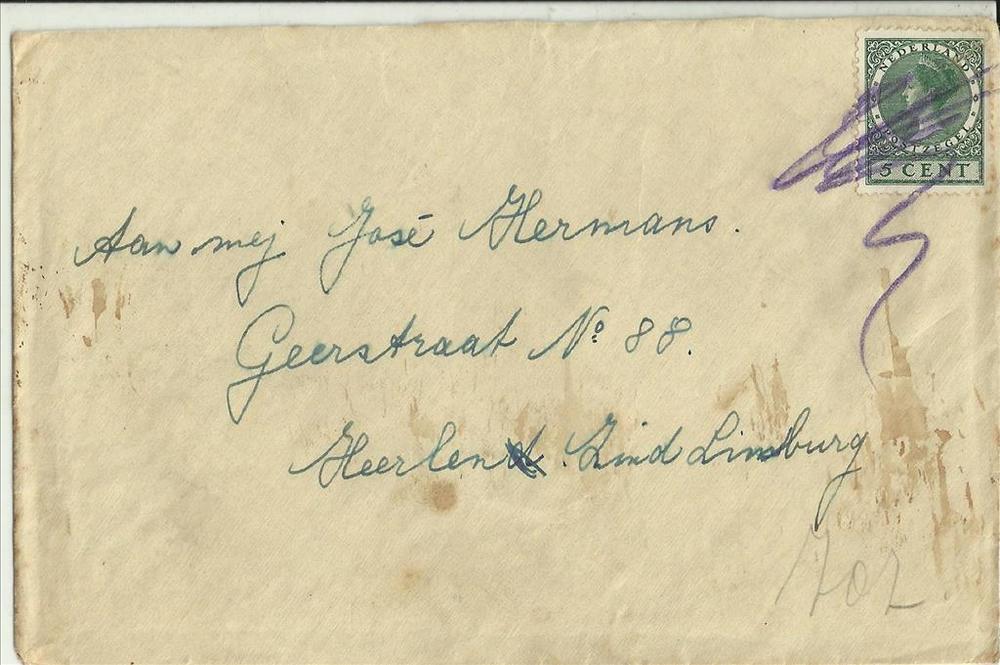 NEDERLAND
POSTZEGEL
5 CENT
Aan mej José Hermans.
Geerstraat No 88.
Heerlen. Zuid Limburg